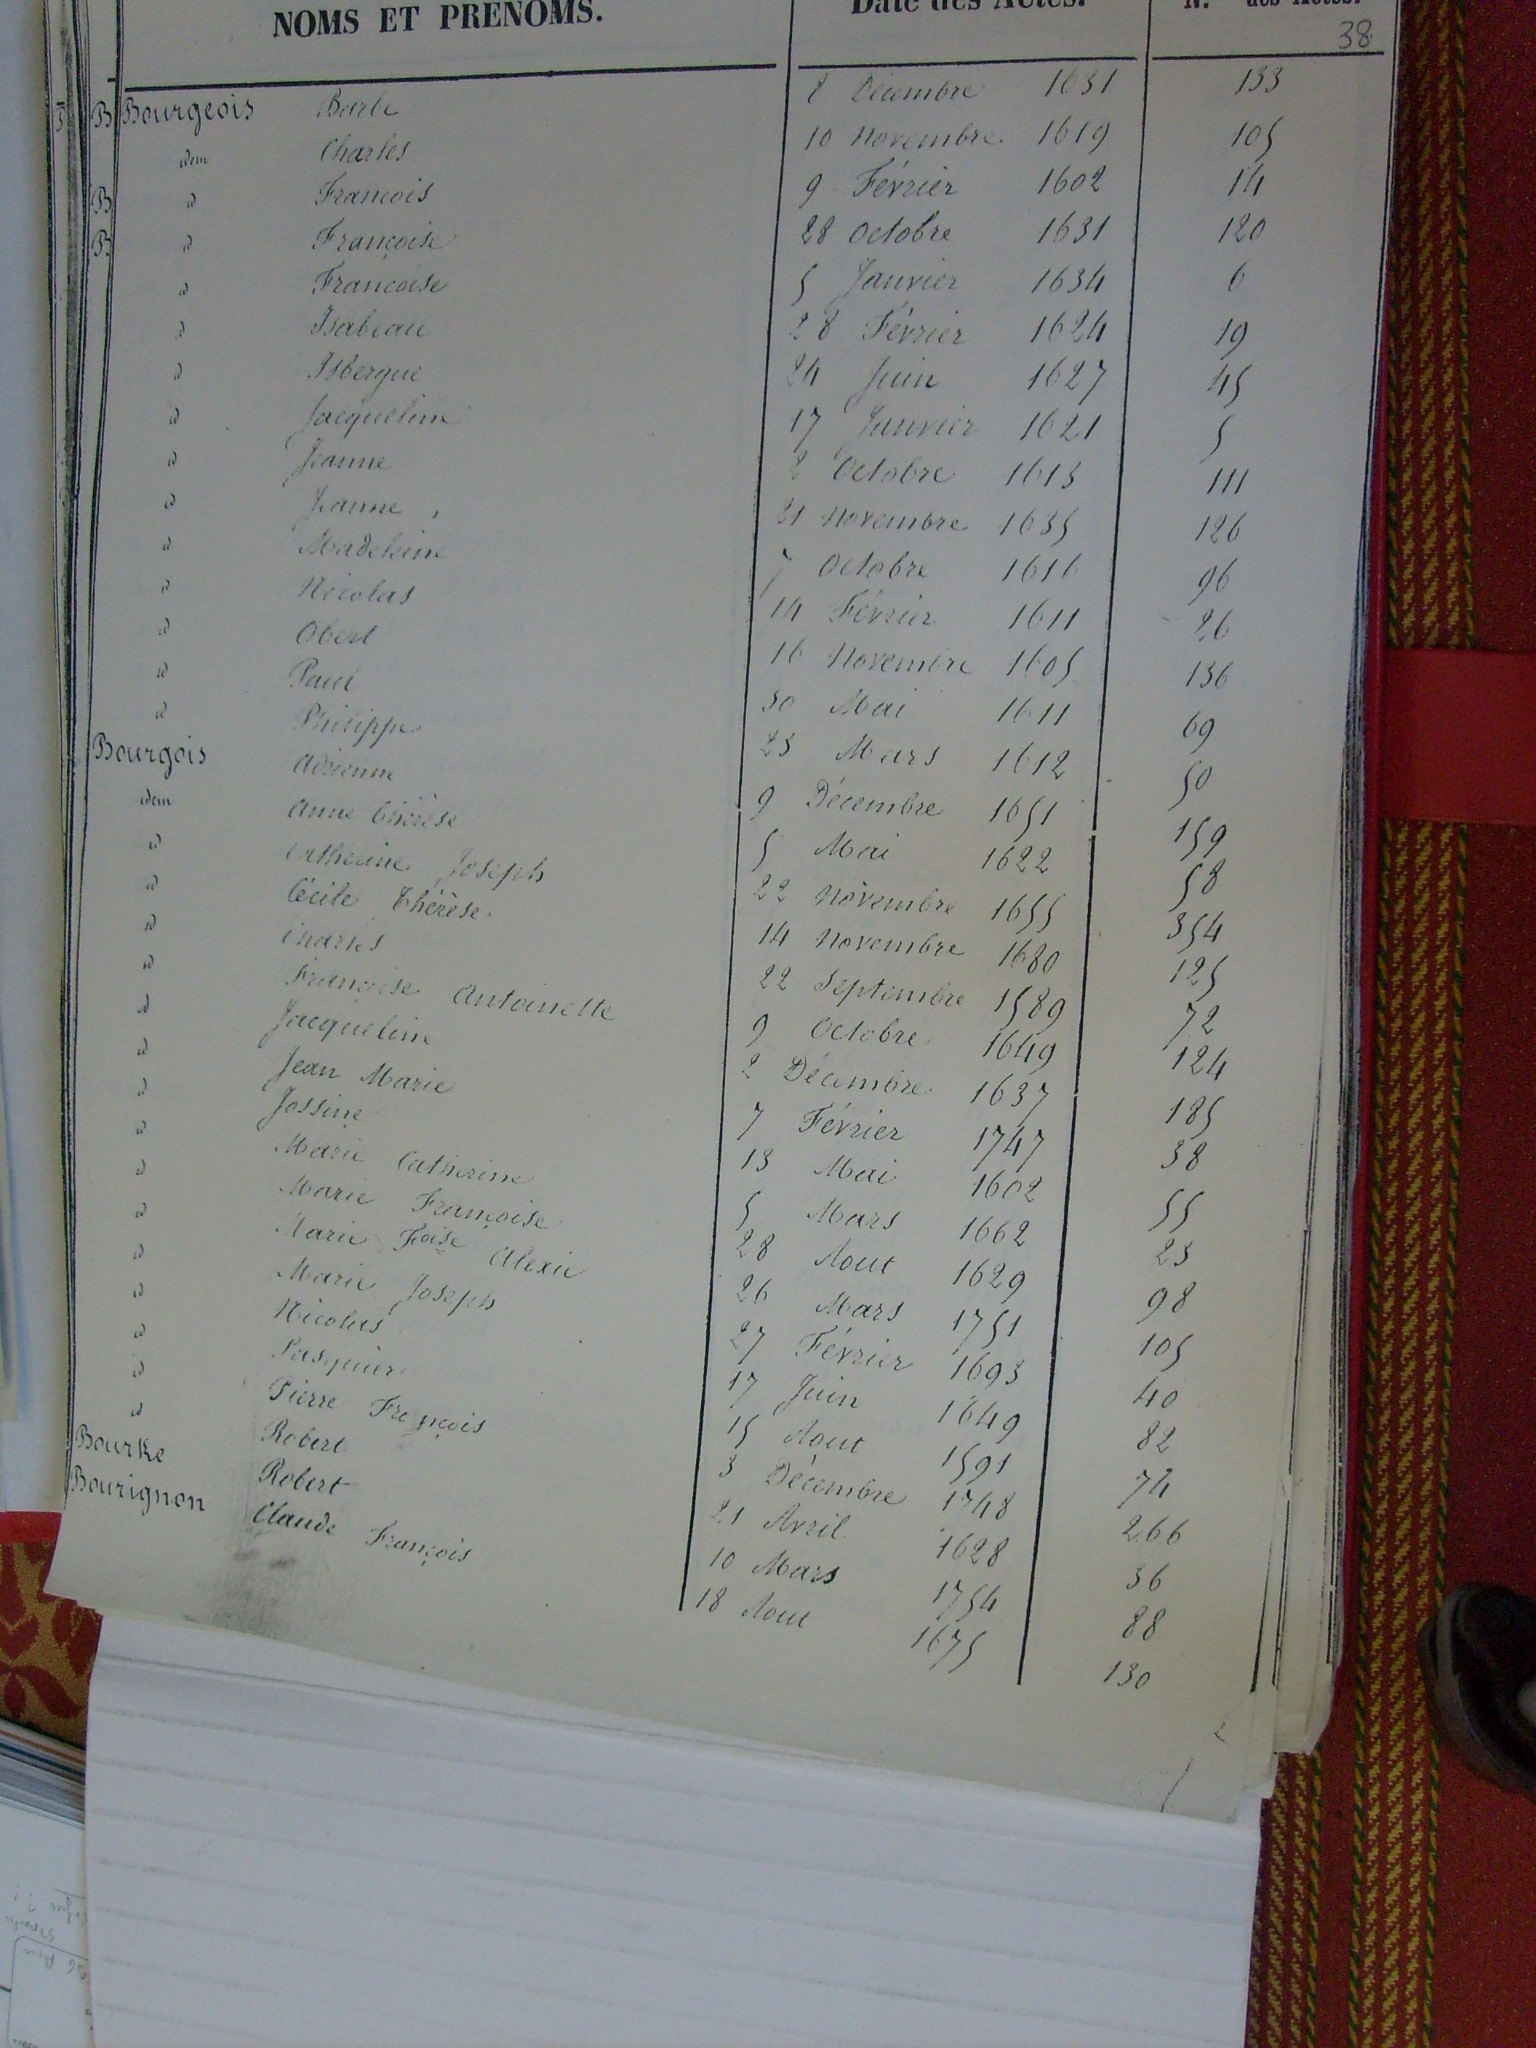 NOMS ET PRÉNOMS. Date des Actes. N.os des Actes.
38
Bourgeois Barbe 8 Décembre 1631 133
idem Charles 10 Novembre 1619 105
id François 9 Février 1602 14
id Françoise 28 Octobre 1631 120
id Françoise 5 Janvier 1634 6
id Isabeau 28 Février 1624 19
id Isbergue 24 Juin 1627 45
id Jacqueline 17 Janvier 1621 5
id Jeanne 2 Octobre 1613 111
id Jeanne 21 Novembre 1635 126
id Madeleine 7 Octobre 1616 96
id Nicolas 14 Février 1611 26
id Obert 16 Novembre 1605 136
id Paul 30 Mai 1611 69
id Philippe 23 Mars 1612 50
Bourgois Adrienne 9 Décembre 1651 159
idem Anne Thérèse 5 Mai 1622 58
id Catherine Joseph 22 Novembre 1655 354
id Cécile Thérèse 14 Novembre 1680 125
id Charles 22 Septembre 1589 72
id Françoise Antoinette 9 Octobre 1649 124
id Jacqueline 2 Décembre 1637 185
id Jean Marie 7 Février 1747 38
id Jossine 13 Mai 1602 55
id Marie Catherine 5 Mars 1662 23
id Marie Françoise 28 Aout 1629 98
id Marie Foise Alexie 26 Mars 1751 105
id Marie Joseph 27 Février 1693 40
id Nicolas 17 Juin 1649 82
id Pasquier 15 Aout 1591 74
id Pierre François 3 Décembre 1748 266
id Robert 21 Avril 1628 36
Bourke Robert 10 Mars 1754 88
Bourignon Claude François 18 Aout 1675 130